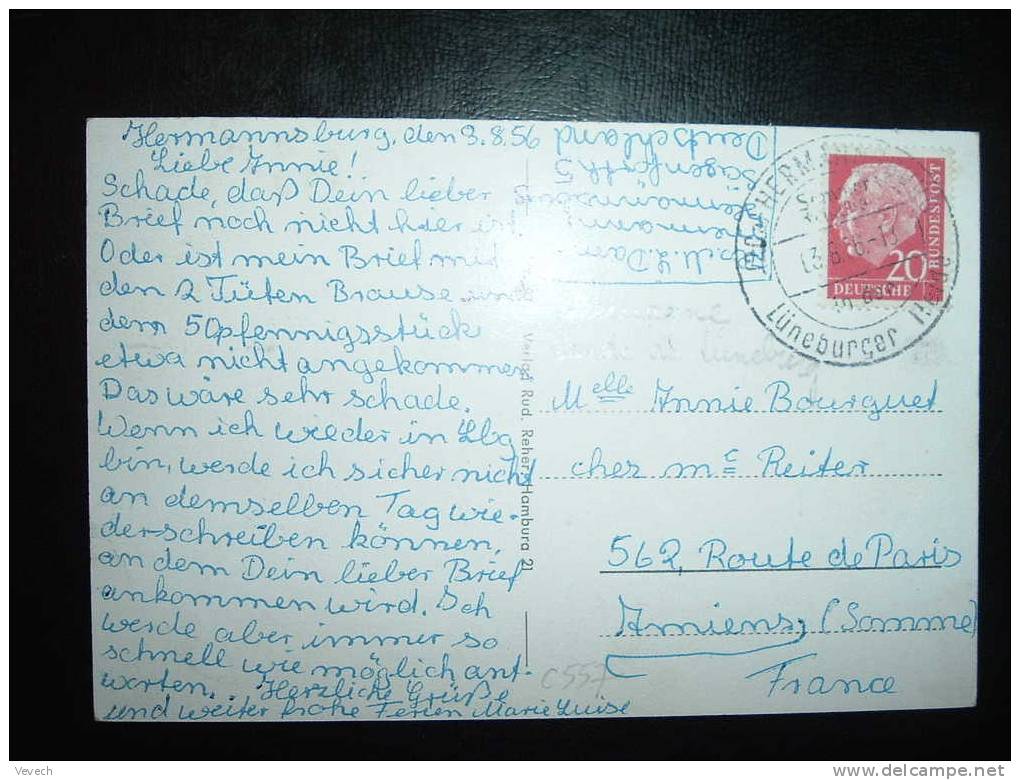 Hermannsburg, den 3.8.56
Liebe Annie!
Schade, daß Dein lieber
Brief noch nicht hier ist
Oder ist mein Brief mit
den 2 Tüten Brause und
dem 50pfennigsstück
etwa nicht angekommen
Das wäre sehr schade.
Wenn ich wieder in Lbg
bin, werde ich sicher nicht
an demselben Tag wie-
derschreiben können,
an dem Dein lieber Brief
ankommen wird. Ich
werde aber immer so
schnell wie möglich ant-
worten. Herzliche Grüße
und weiter frohe Ferien Marie Luise
Deutschland
Verlag Rud. Reher, Hamburg 21
Lüneburger
20
DEUTSCHE
BUNDESPOST
Melle Annie Bourguet
chez Mc Reiter
562, Route de Paris
Amiens, (Somme)
France
C557
Vevech
delcampe.net